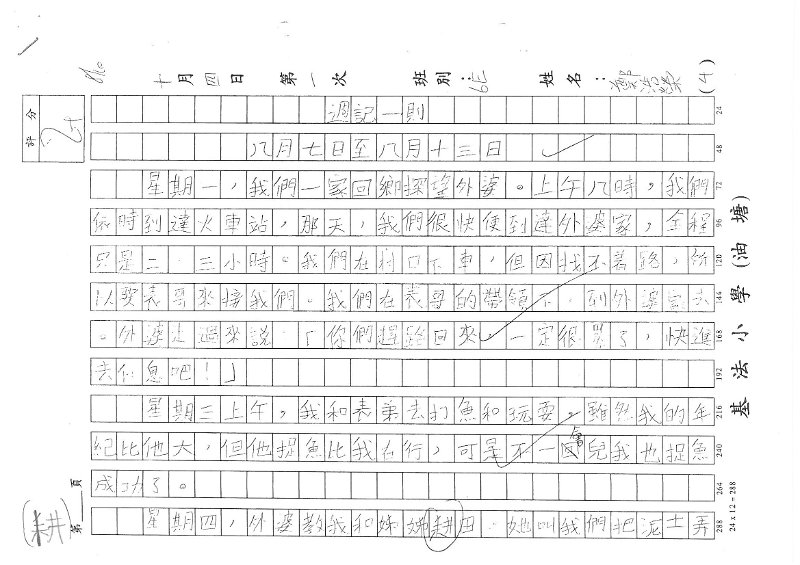 十月四日 第一次 班別：6E 姓名：鄭浩榮 (4)
評分
週記一則 24
八月七日至八月十三日 48
星期一，我們一家回鄉探望外婆。上午八時，我們 72
依時到達火車站，那天，我們很快便到達外婆家，全程 96
只是二、三小時。我們在村口下車，但因找不着路，所 120
以要表哥來接我們。我們在表哥的帶領下，到外婆家去 144
。外婆走過來說：「你們趕路回來，一定很累了，快進 168
去休息吧！」 192
星期三上午，我和表弟去打魚和玩耍。雖然我的年 216
紀比他大，但他捉魚比我在行，可是不一會兒我也捉魚 240
成功了。 264
星期四，外婆教我和姊姊耕田。她叫我們把泥土弄 288
24 x 12 = 288
基法小學 (油塘)
第一頁
(耕)